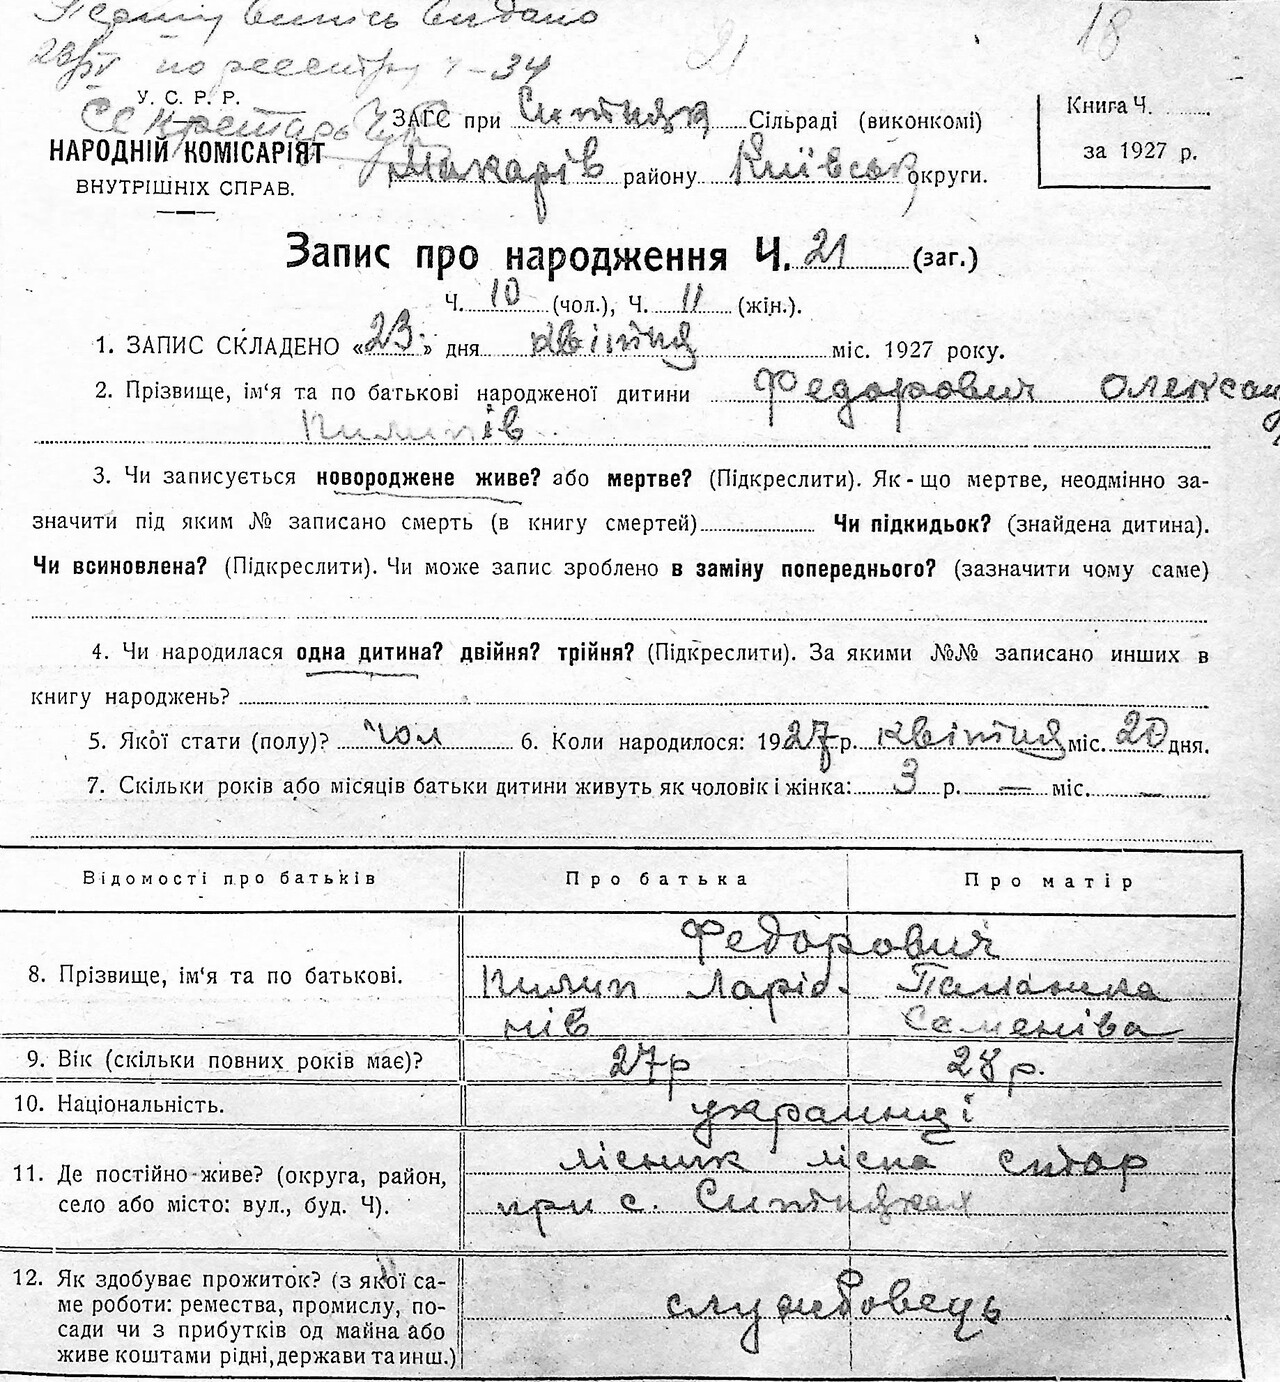 виписъ видано
по реестру ч-34
18
21
У. С. Р. Р.
Секретарь
НАРОДНІЙ КОМІСАРІЯТ
ВНУТРІШНІХ СПРАВ.
ЗАГС при Ситняки Сільраді (виконкомі)
Макарів району Київськ округи.
Книга Ч. ........
за 1927 р.
Запис про народження Ч. 21 (заг.)
Ч. 10 (чол.), Ч. 11 (жін.).
1. ЗАПИС СКЛАДЕНО «23» дня квітня міс. 1927 року.
2. Прізвище, ім‘я та по батькові народженої дитини Федорович Олексан
Пилипів
3. Чи записується новороджене живе? або мертве? (Підкреслити). Як-що мертве, неодмінно за-
значити під яким № записано смерть (в книгу смертей) Чи підкидьок? (знайдена дитина).
Чи всиновлена? (Підкреслити). Чи може запис зроблено в заміну попереднього? (зазначити чому саме)
4. Чи народилася одна дитина? двійня? трійня? (Підкреслити). За якими №№ записано инших в
книгу народжень?
5. Якої стати (полу)? чол 6. Коли народилося: 1927 р. квітня міс. 20 дня.
7. Скільки років або місяців батьки дитини живуть як чоловік і жінка: 3 р. — міс. —
Відомості про батьків Про батька Про матір
Федорович
8. Прізвище, ім‘я та по батькові. Пилип Ларіо- Паланила
нів Семенівa
9. Вік (скільки повних років має)? 27р 28 р.
10. Національність. украинці
11. Де постійно живе? (округа, район, лісник
село або місто: вул., буд. Ч). при с. Ситняках
12. Як здобуває прожиток? (з якої са-
ме роботи: ремества, промислу, по- службовець
сади чи з прибутків од майна або
живе коштами рідні, держави та инш.)